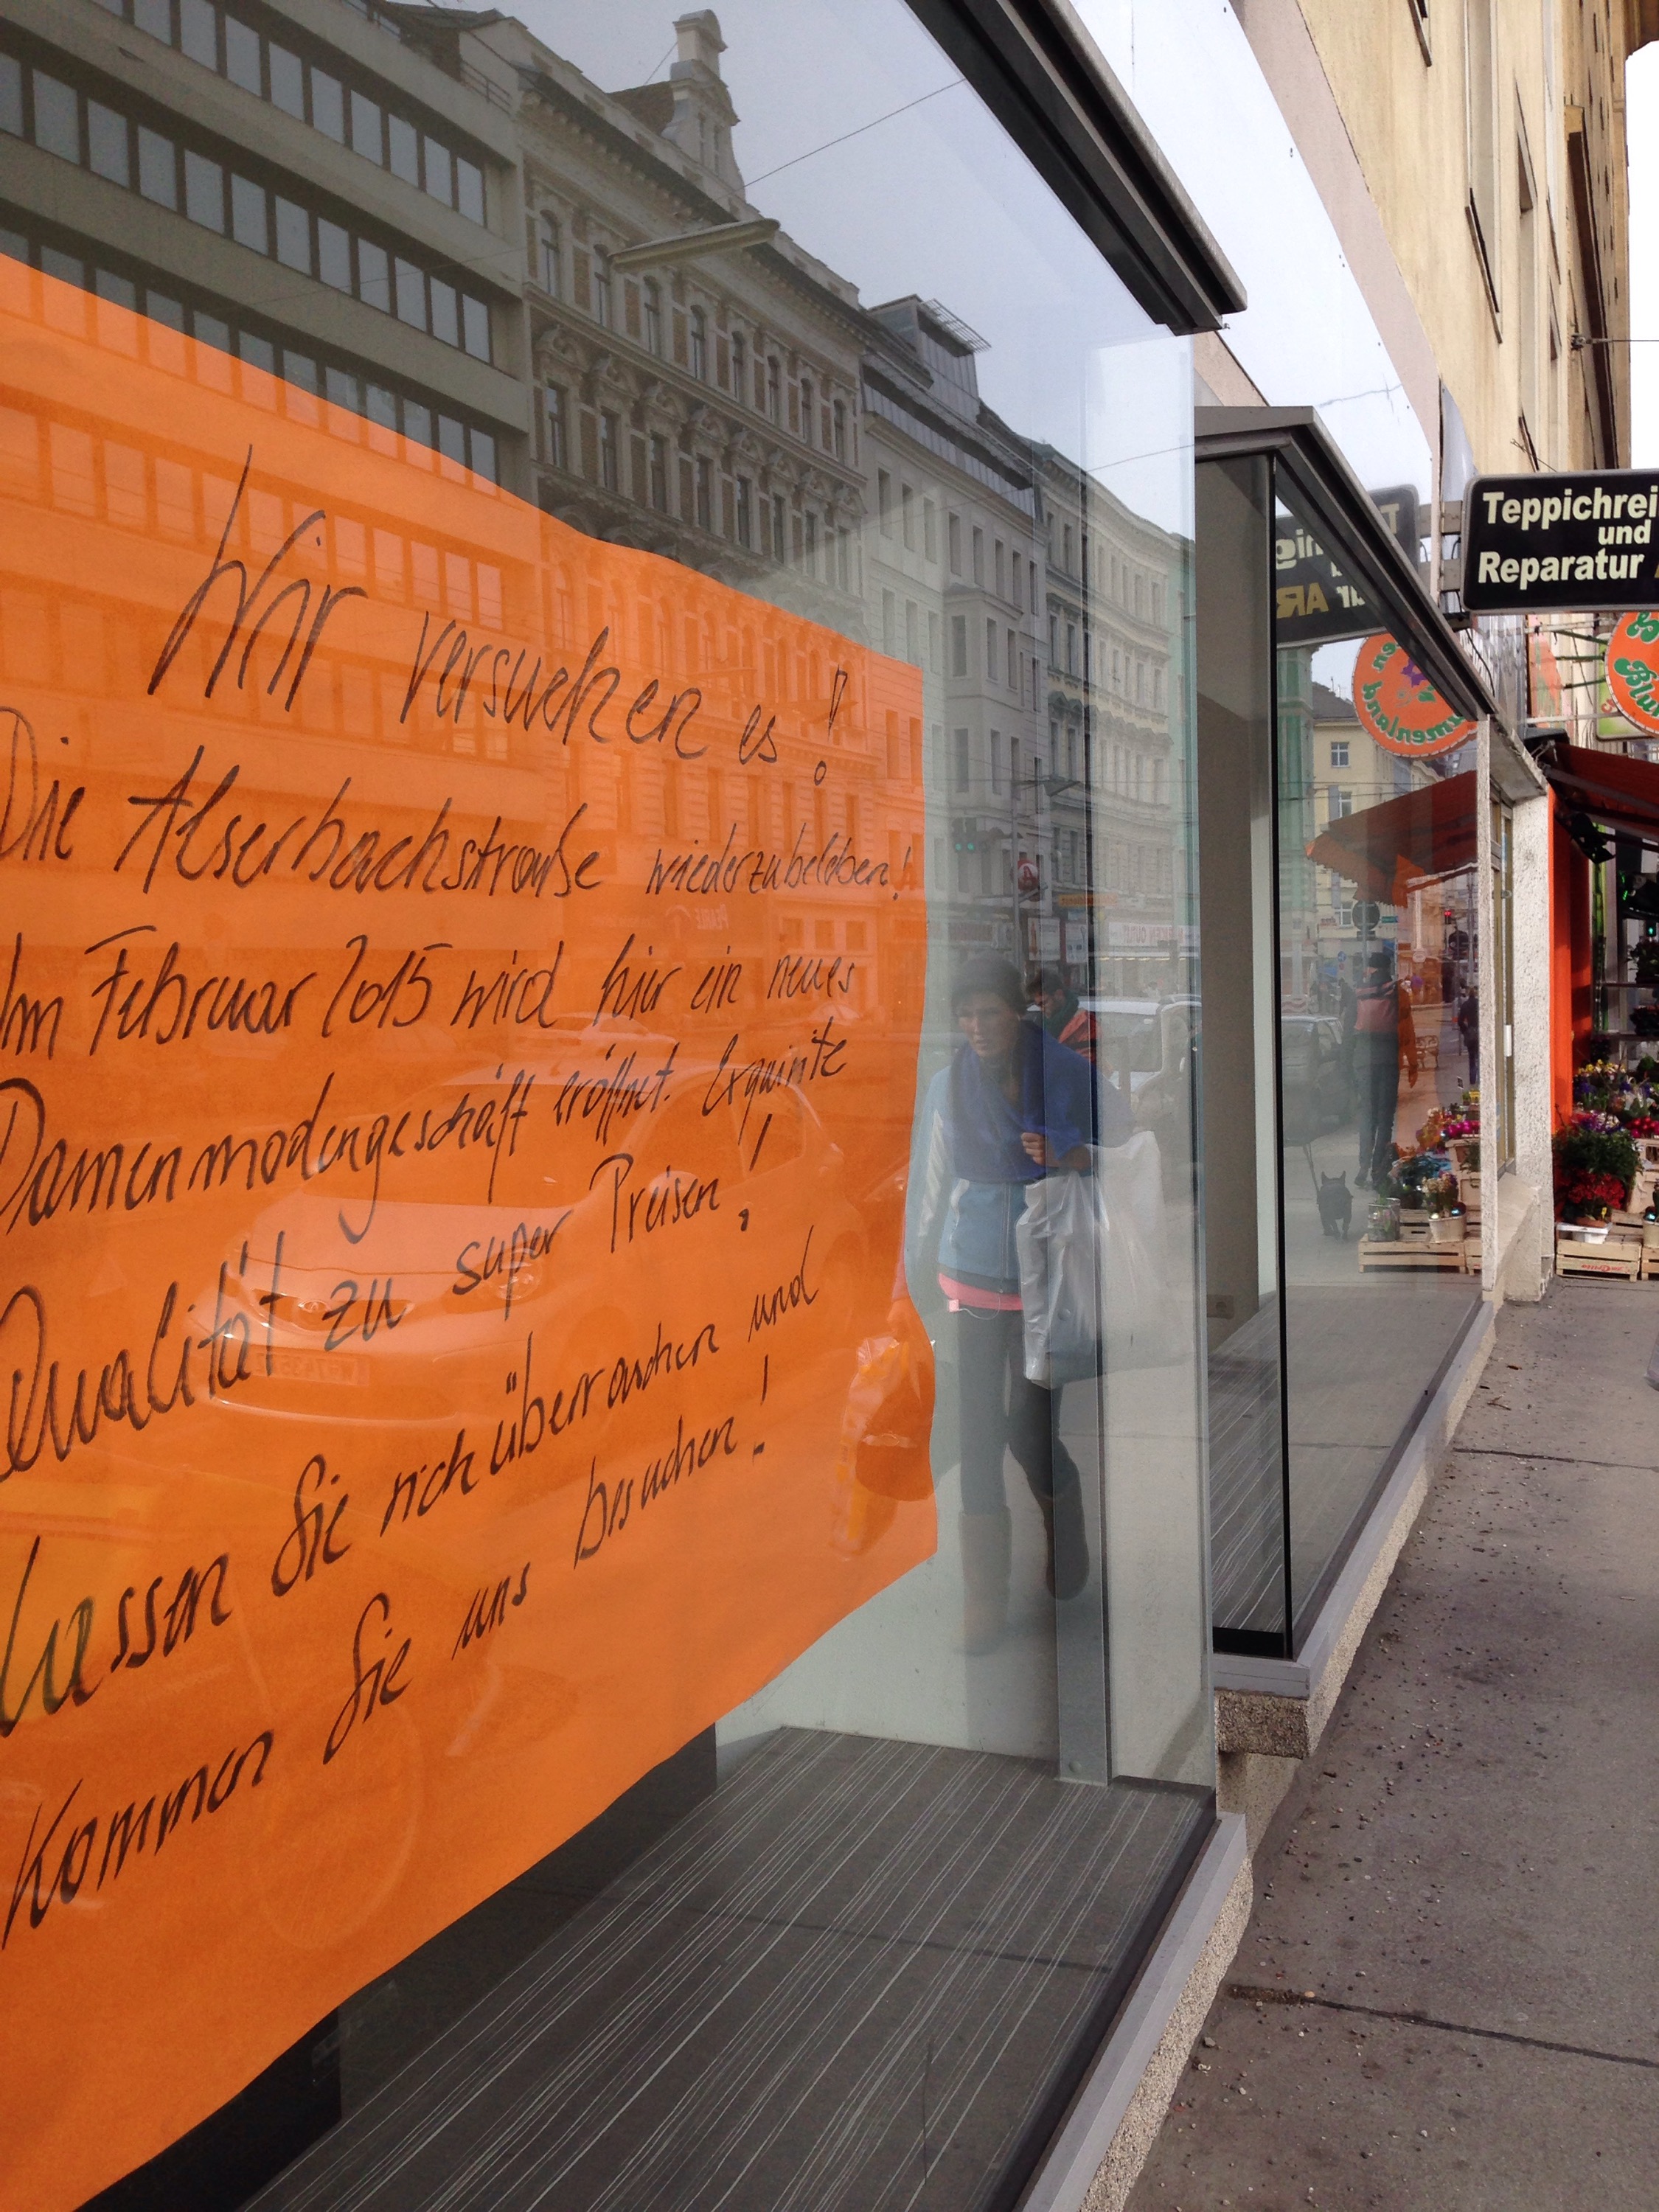 Wir versuchen es!
Die Alserbachstraße wiederzubeleben!
Im Februar 2015 wird hier ein neues
Damenmodengeschäft eröffnet. Exquisite
Qualität zu super Preisen!
Lassen Sie sich überraschen und
Kommen Sie uns besuchen!
Teppichrei
und
Reparatur
Blu